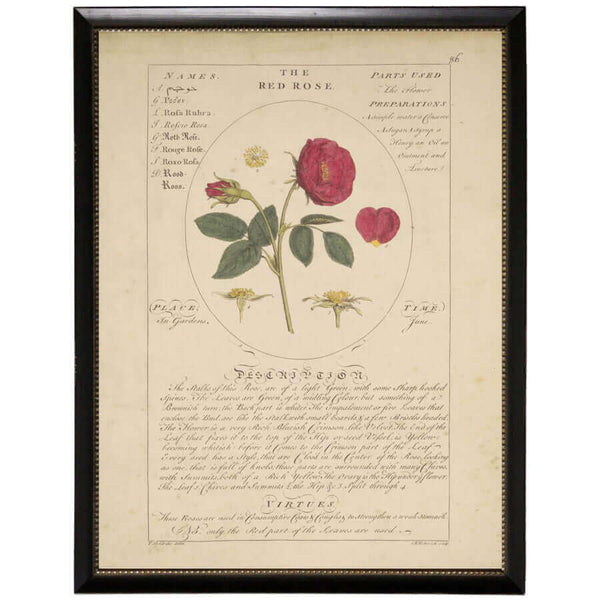 86
THE
RED ROSE.
NAMES.
A.
G. Ροδον
L. Rosa Rubra
I. Roscio Rosa
G. Roth Rose.
F. Rouge Rose.
S. Roxo Rosa
D. Rood-
Roos.
PARTS USED
The Flower
PREPARATIONS
A simple water a Conserve
A Sugar A Syrup a
Honey an Oil an
Ointment and
Tincture
PLACE
In Gardens.
TIME.
June.
DESCRIPTION
The Stalks of this Rose, are of a light Green, with some Sharp hooked
Spines. The Leaves are Green, of a midling Colour but something of a
Brownish turn, the Back part is whiter. The Empalement or five Leaves that
enclose the Bud, are like the Stalk with small beards & a few Bristles headed
The Flower is a very Rich Blueish Crimson, like Velvet. The End of the
Leaf that fixes it to the top of the Hip or seed Vessel is Yellow
becoming whitish before it Comes to the Crimson part of the Leaf
Every seed has a Style, that are Close in the Center of the Rose, looking
as one, that is full of knobs, these parts are surrounded with many Chives,
with Summits, both of a Rich Yellow. The Ovary is the Hip under ye flower.
The Leaf 1, Chives and Summits 2, the Hip & 3 Split through 4
VIRTUES.
These Roses are used in Consumptive Cases & Coughs, & to Strengthen a weak Stomach.
NB. only the Red part of the Leaves are used